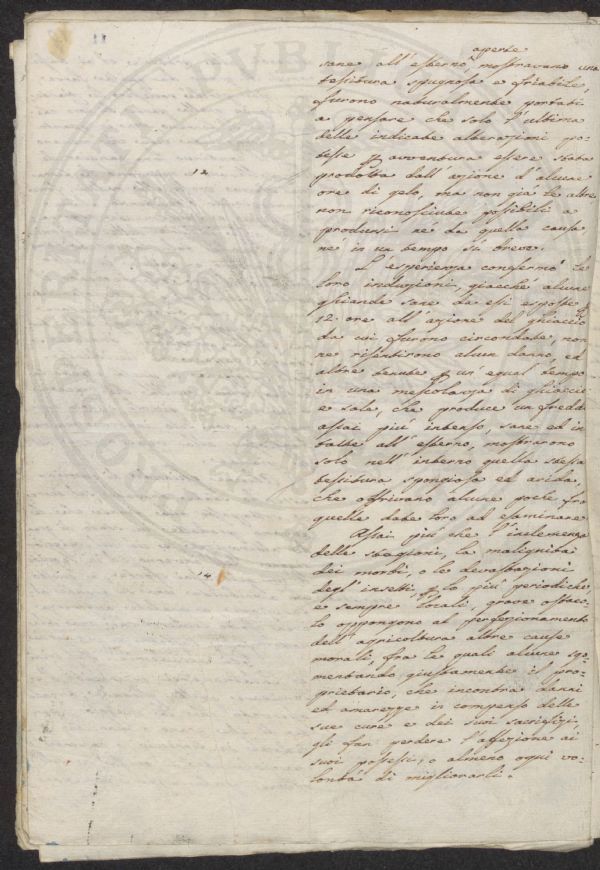 aperte
sane all'esterno mostravano una
tessitura spugnosa e friabile,
furono naturalmente portati
a pensare che solo l'ultima
delle indicate alterazioni po-
tesse p avventura essere stata
prodotta dall'azione d'alcune
ore di gelo, ma non già le altre
non riconosciute possibili a
prodursi né da quella causa
né in un tempo sì breve.
L'esperienza confermò le
loro induzioni, giacché alcune
ghiande sane da essi esposte p
12 ore all'azione del ghiaccio
da cui furono circondate, non
ne risentirono alcun danno, ed
altre tenute p un'egual tempo
in una mescolanza di ghiaccio
e sale, che produce un freddo
assai più intenso, sane ed in-
tatte all'esterno, mostrarono
solo nell'interno quella stessa
tessitura spongiosa ed arida,
che offrivano alcune poche fra
quelle date loro ad esaminare
Assai più che l'inclemenza
delle stagioni, la malignità
dei morbi, o le devastazioni
degl'insetti, p lo più periodiche,
e sempre locali, grave ostaco-
lo oppongono al perfezionamento
dell'agricoltura altre cause
morali, fra le quali alcune sgo-
mentando giustamente il pro-
prietario, che incontra danni
ed amarezze in compenso delle
sue cure e dei suoi sacrifizi,
gli fan perdere l'affezione ai
suoi possessi, o almeno ogni vo-
lontà di migliorarli.
12
14
11
PUBLIC